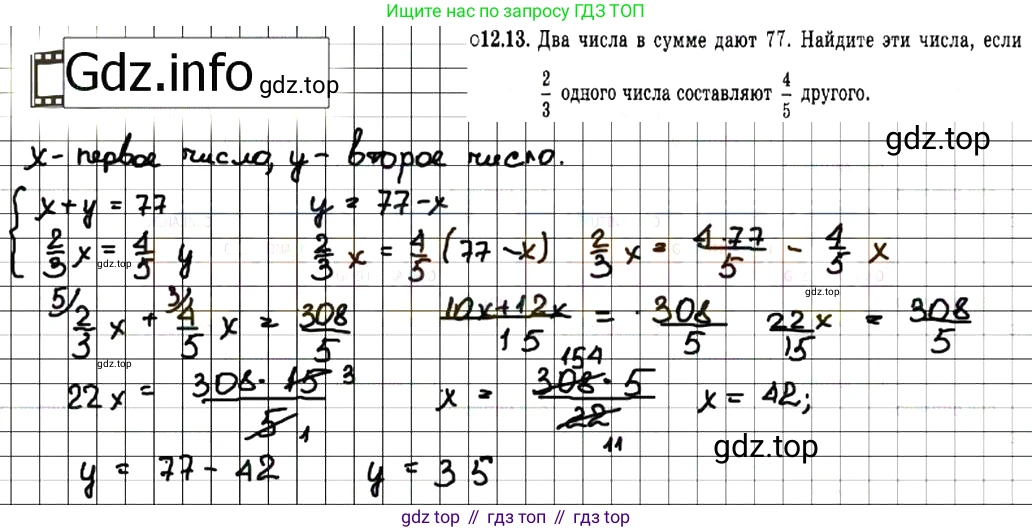 Ищите нас по запросу ГДЗ ТОП
Gdz.info gdz.top
12.13. Два числа в сумме дают 77. Найдите эти числа, если
2/3 одного числа составляют 4/5 другого.
gdz.top
x - первое число, y - второе число.
x + y = 77 y = 77 - x
2/3 x = 4/5 y 2/3 x = 4/5 (77 - x) 2/3 x = 4·77/5 - 4/5 x
gdz.top
gdz.top
5/ 2/3 x + 3/ 4/5 x = 308/5 10x+12x/15 = 308/5 22/15 x = 308/5
gdz.top
22x = 308·15 3/5 1 x = 154 308·5/22 11 x = 42;
gdz.top
y = 77 - 42 y = 35
gdz.top // гдз топ // gdz.top